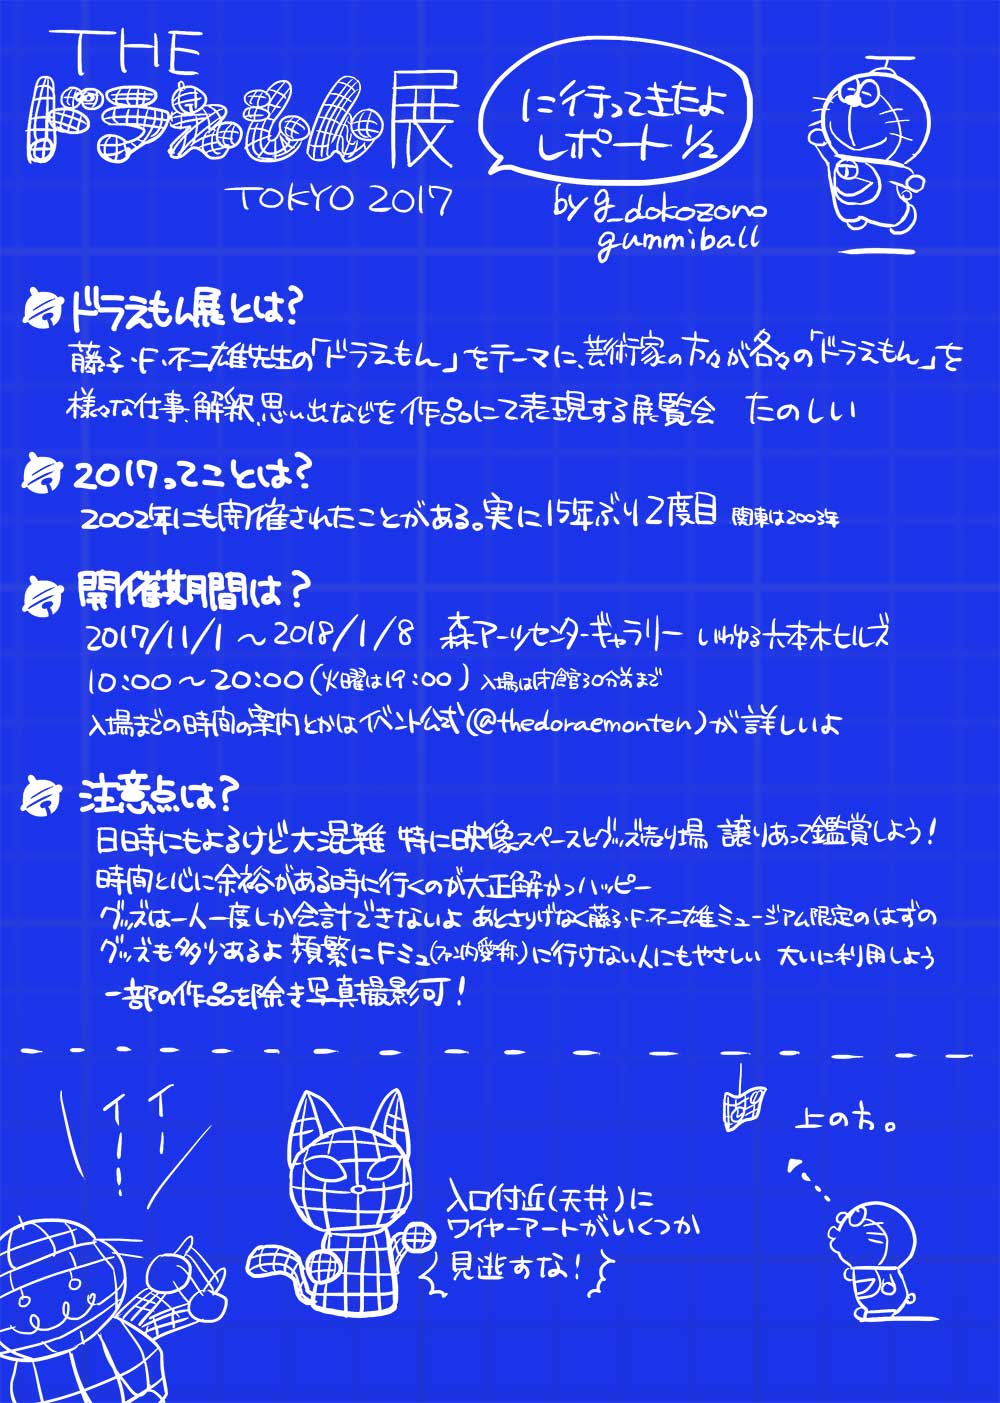 THE
ドラえもん展
TOKYO 2017
に行ってきたよ
レポート 1/2
by g_dokozono
gummiball
ドラえもん展とは?
藤子・F・不二雄先生の「ドラえもん」をテーマに、芸術家の方々が各々の「ドラえもん」を
様々な仕事、解釈、思い出などを作品にて表現する展覧会 たのしい
2017ってことは?
2002年にも開催されたことがある。実に15年ぶり2度目 関東は2003年
開催期間は?
2017/11/1 ~ 2018/1/8 森アーツセンターギャラリー いわゆる六本木ヒルズ
10:00~20:00(火曜は19:00) 入場は閉館30分前まで
入場までの時間の案内とかはイベント公式(@thedoraemonten)が詳しいよ
注意点は?
日時にもよるけど大混雑 特に映像スペースとグッズ売り場 譲りあって鑑賞しよう!
時間と心に余裕がある時に行くのが大正解かつハッピー
グッズは一人一度しか会計できないよ あとさりげなく藤子・F・不二雄ミュージアム限定のはずの
グッズも多少あるよ 頻繁にFミュ(ファン内愛称)に行けない人にもやさしい 大いに利用しよう
一部の作品を除き写真撮影可!
イイ
上の方。
入口付近(天井)に
ワイヤーアートがいくつか
見逃すな!